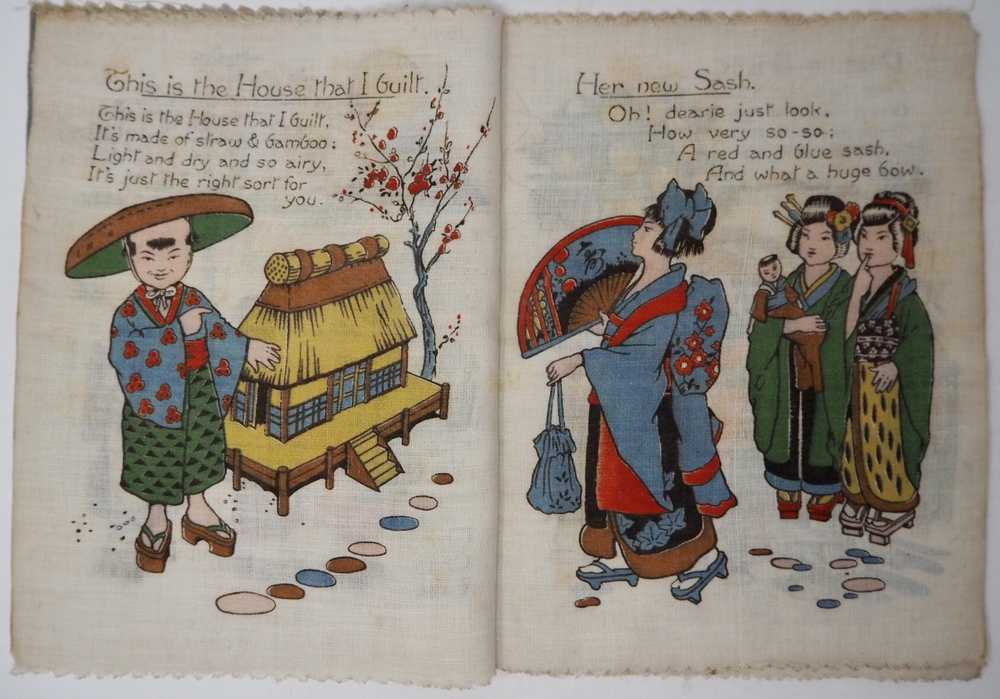 This is the House that I Built.
This is the House that I Built,
It's made of straw & Bamboo;
Light and dry and so airy,
It's just the right sort for
you.
Her new Sash.
Oh! dearie just look,
How very so-so;
A red and blue sash,
And what a huge bow.